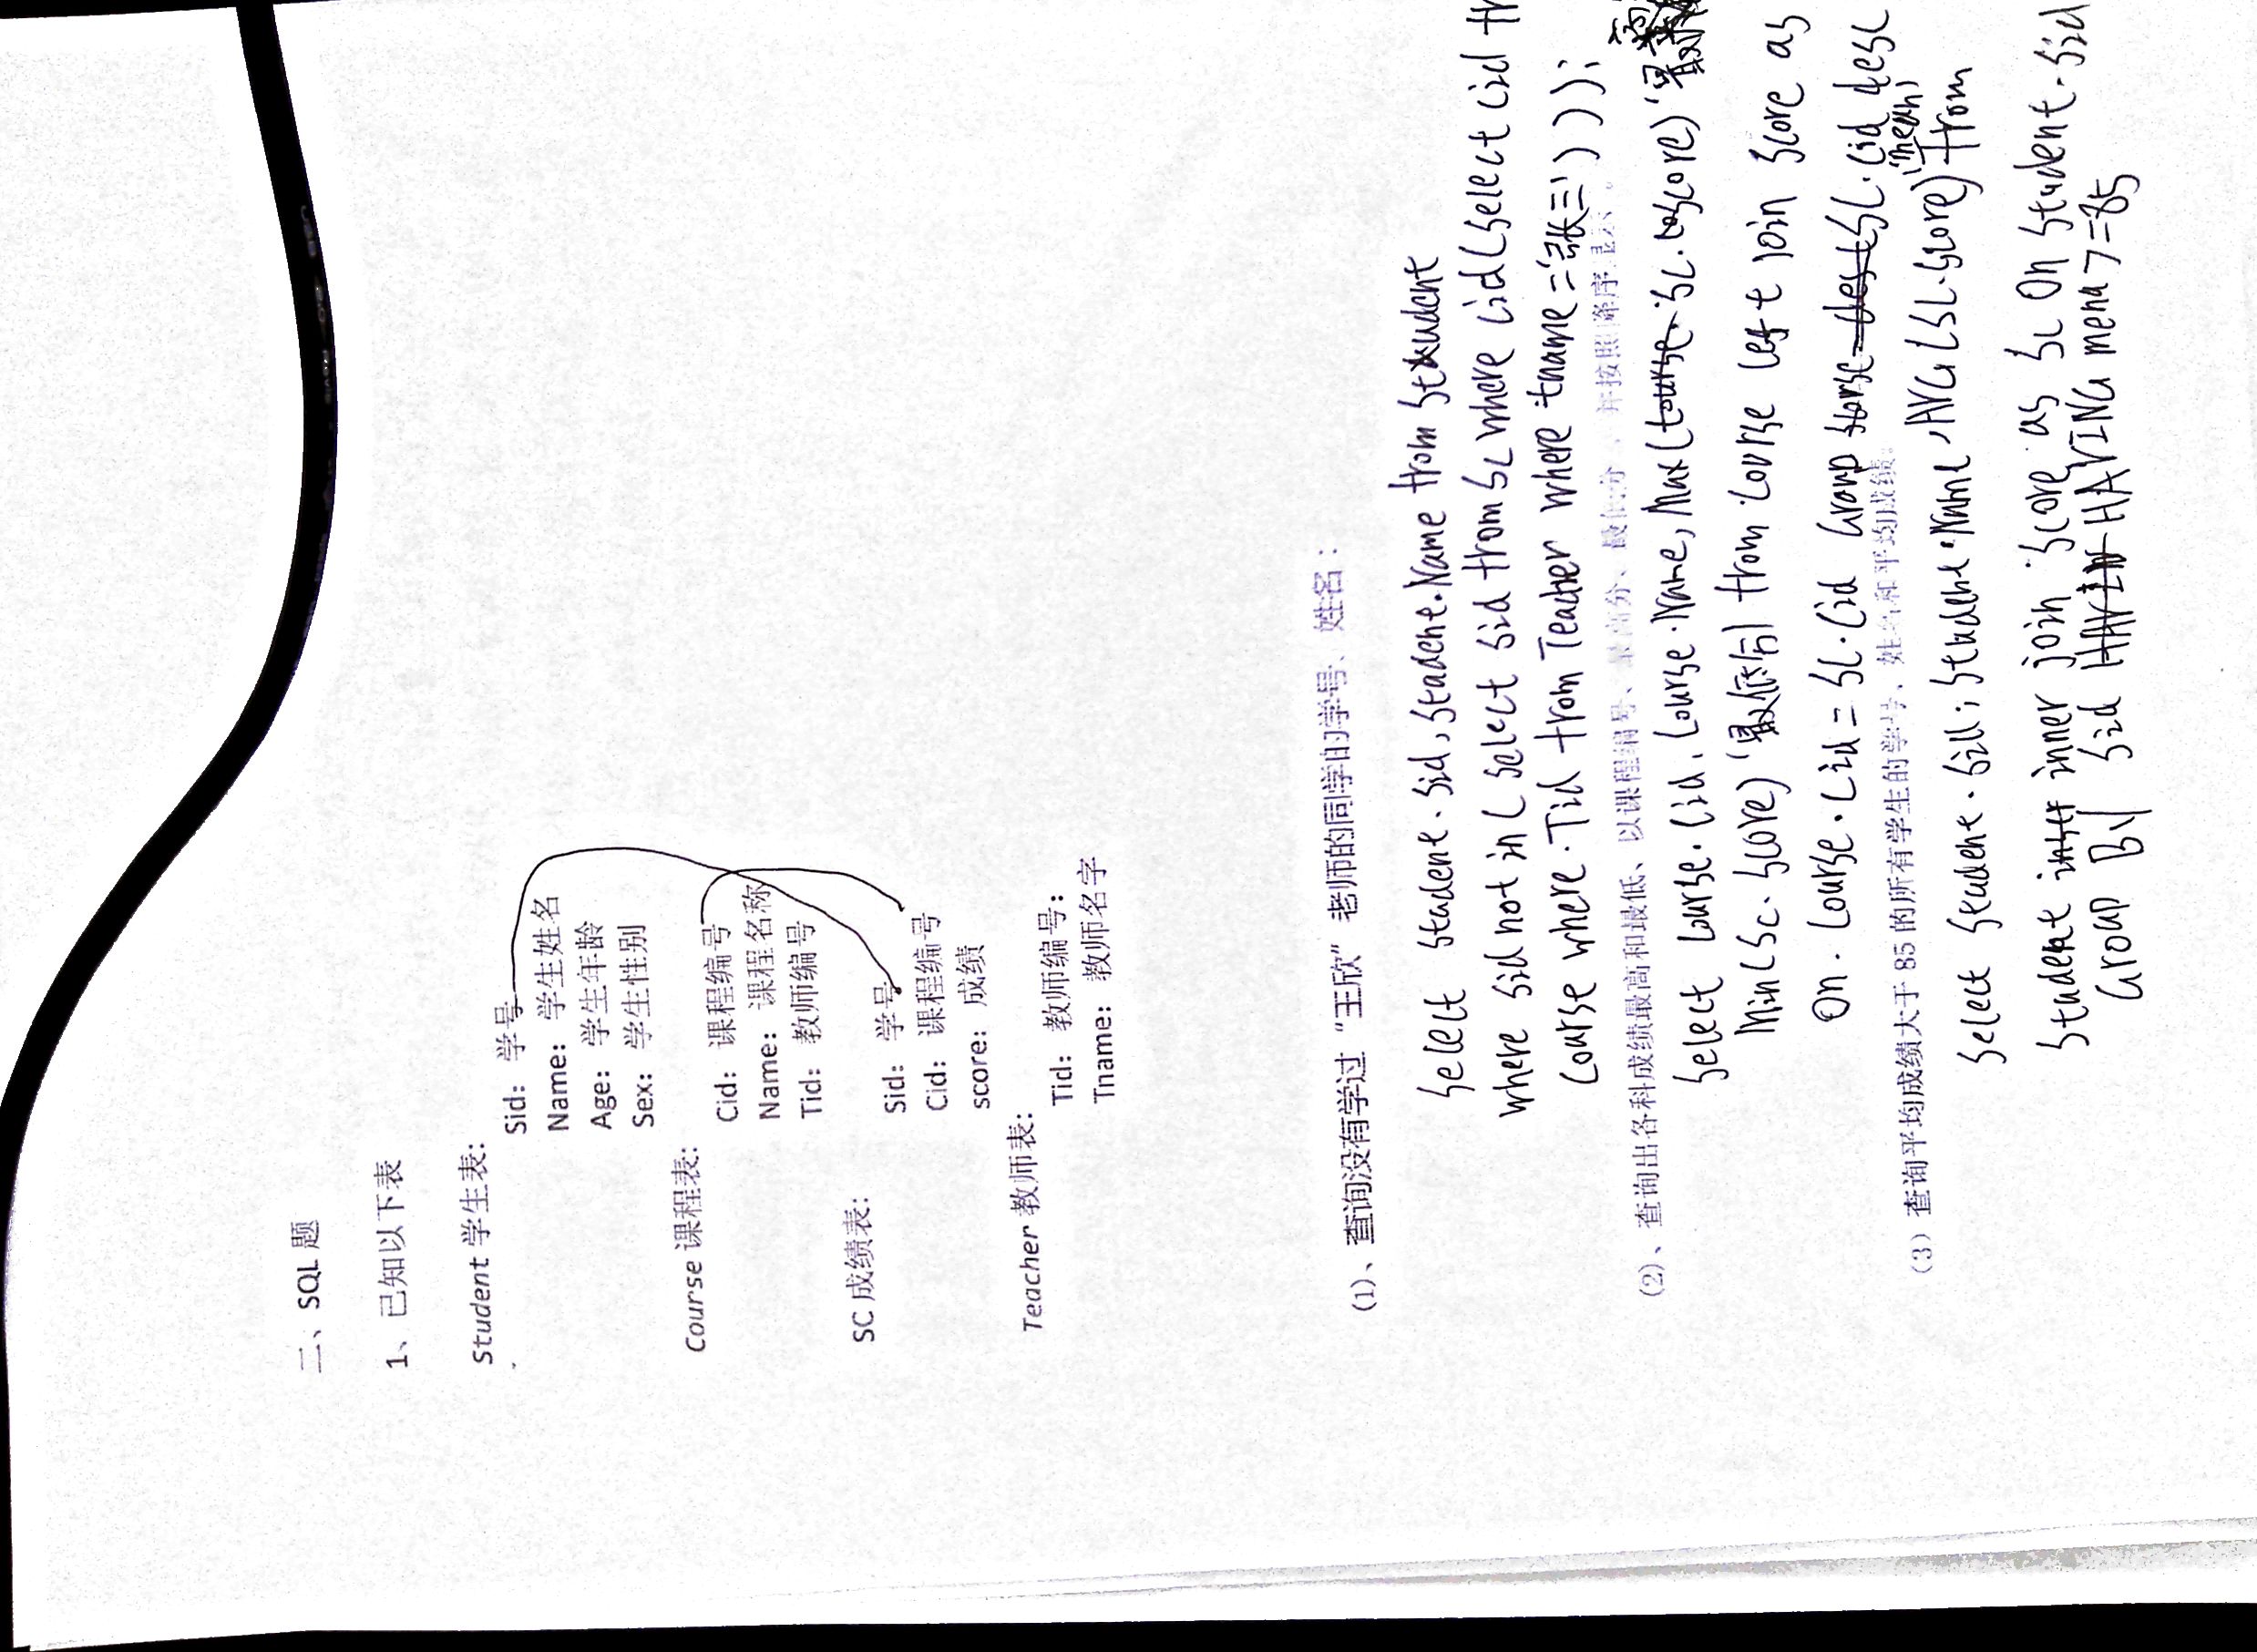 二、SQL 题
1、已知以下表
Student 学生表:
Sid: 学号
Name: 学生姓名
Age: 学生年龄
Sex: 学生性别
Course 课程表:
Cid: 课程编号
Name: 课程名称
Tid: 教师编号
SC 成绩表:
Sid: 学号
Cid: 课程编号
score: 成绩
Teacher 教师表:
Tid: 教师编号:
Tname: 教师名字
(1)、查询没有学过“王欣”老师的同学的学号、姓名:
Select Student.Sid, Student.Name from Student
where Sid not in (Select Sid from SC where Cid (Select Cid fr
Course where.Tid from Teacher where tname='张三'))));
(2)、查询出各科成绩最高和最低、以课程编号、最高分、最低分、并按照降序显示。
Select Course.Cid, Course.Name, Max(SC.score)'最高
Min(SC.Score)'最低后 from Course left join Score as
On.Course.Cid=SC.Cid Group SC.Cid desc
(3)查询平均成绩大于 85 的所有学生的学号、姓名和平均成绩。
Select Student.Sid; Student.Name, AVG(SC.Score)'mean' from
Student inner join Score as SC On Student.Sid
Group By Sid HAVING mena>=85